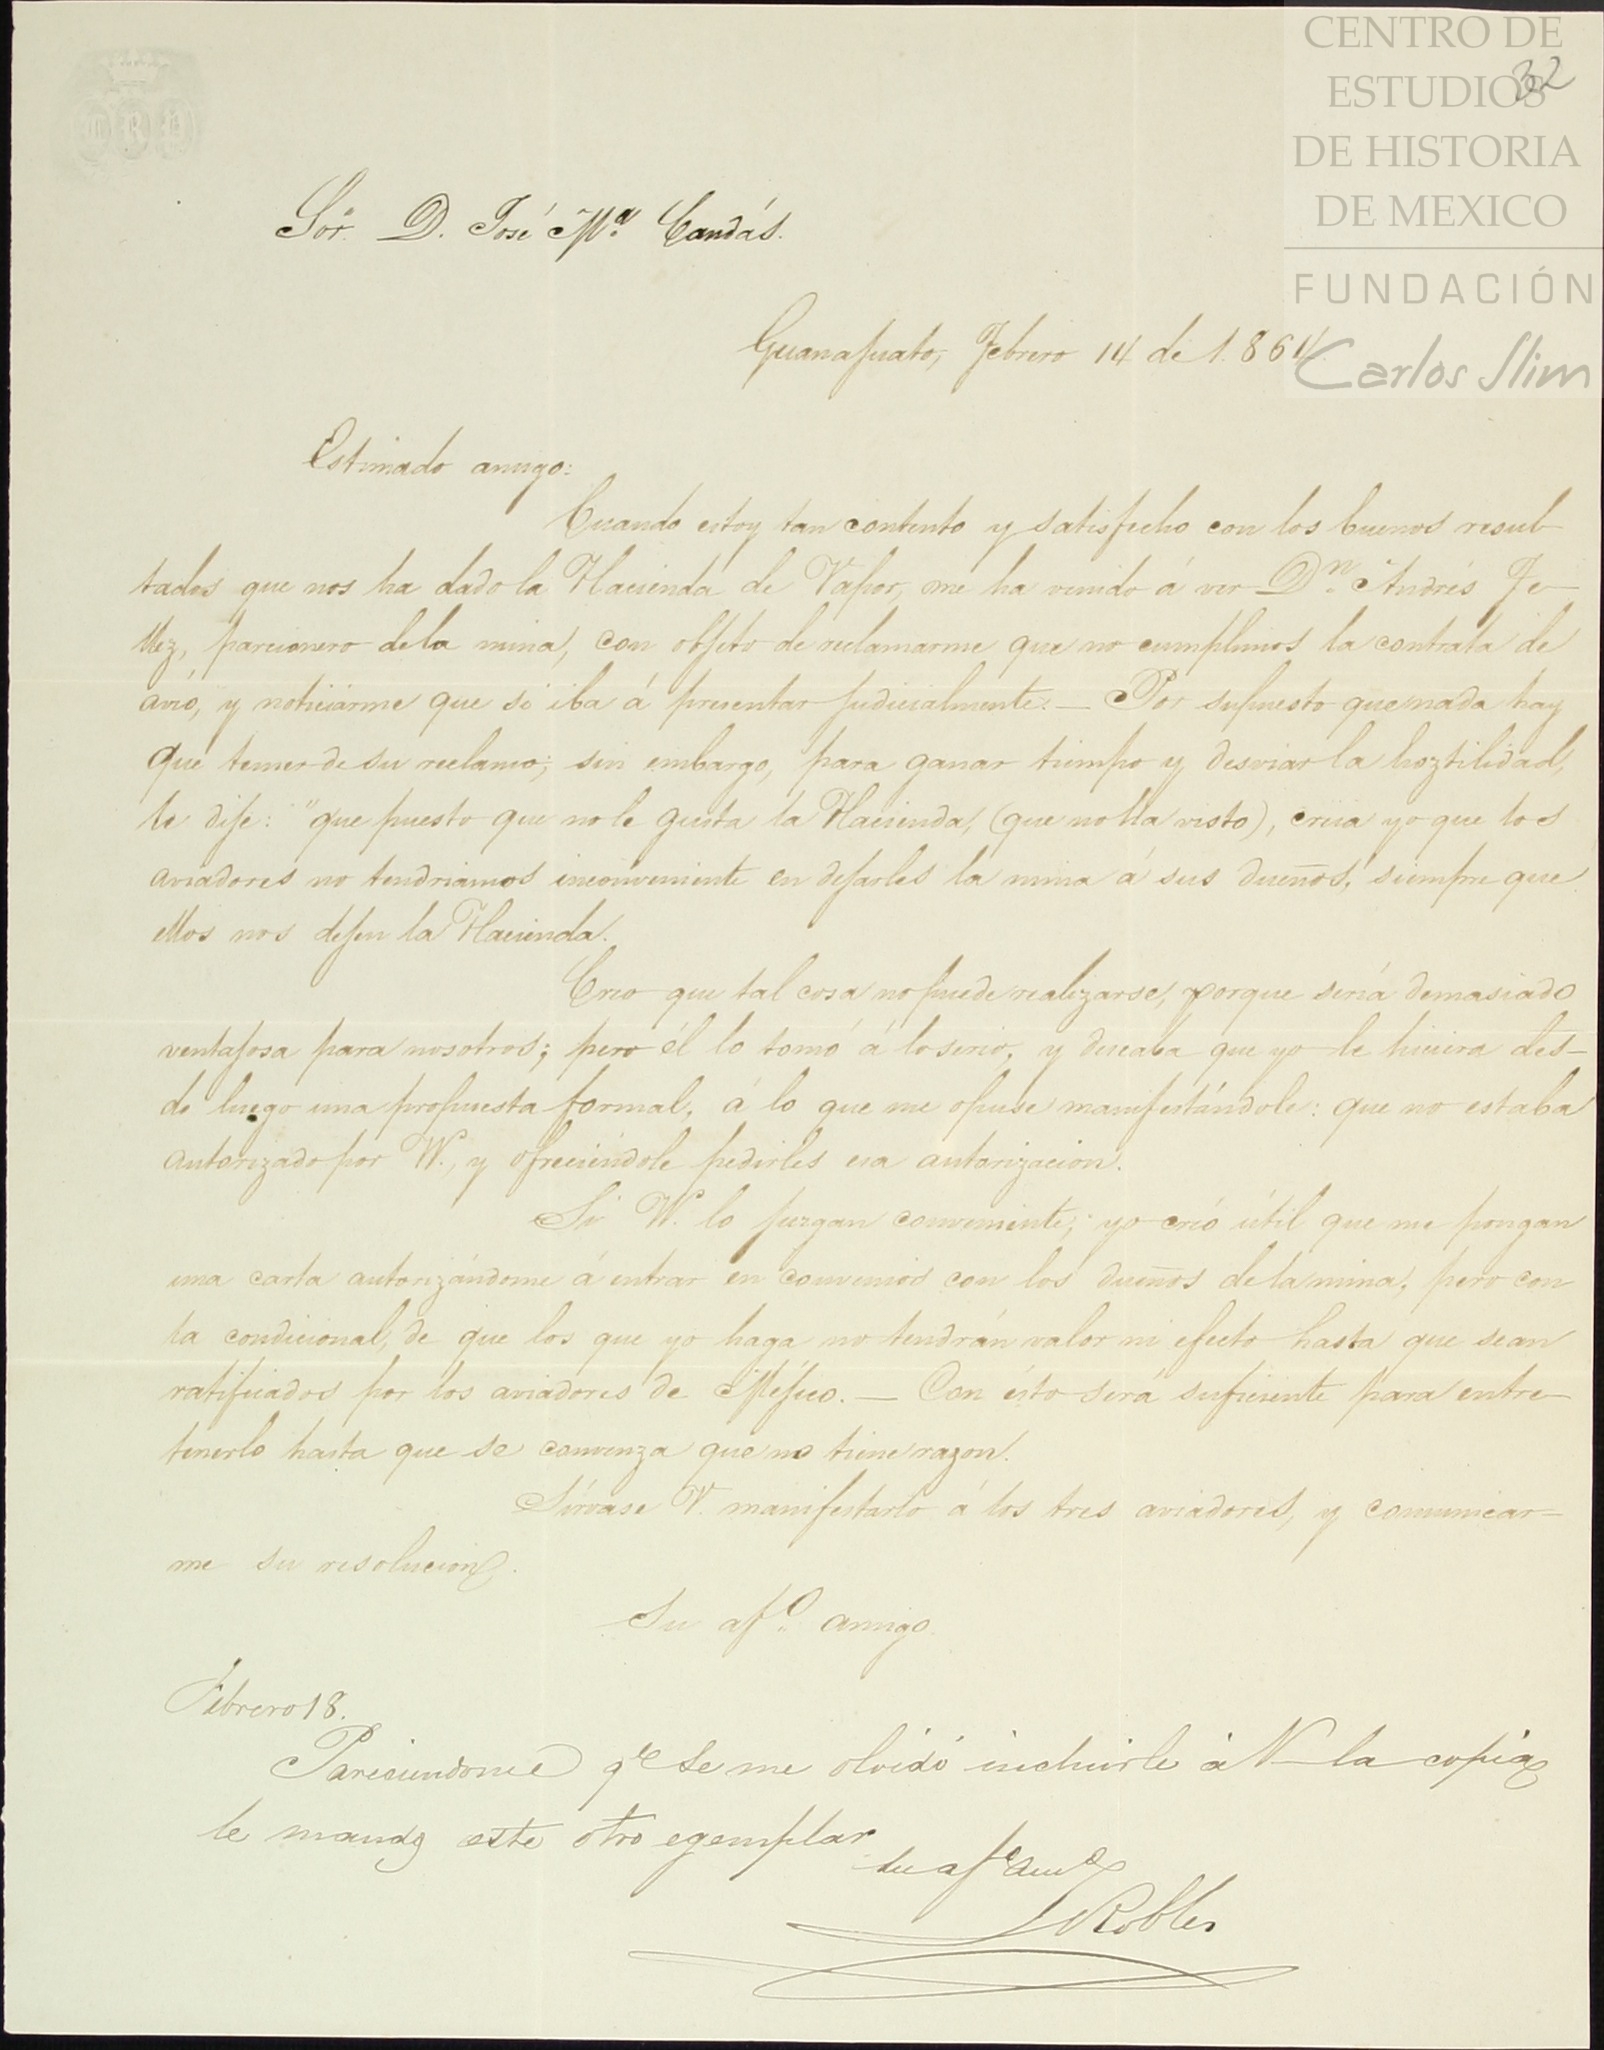 CENTRO DE
ESTUDIOS
DE HISTORIA
DE MEXICO
FUNDACIÓN
Carlos Slim
32
Sór. D. José Mª Candás.
Guanajuato, Febrero 14 de 1.864.
Estimado amigo:
Cuando estoy tan contento y satisfecho con los buenos resul-
tados que nos ha dado la Hacienda de Vapor, me ha venido á ver Dn. Andrés Te-
llez, parcionero de la mina, con objeto de reclamarme que no cumplimos la contrata de
avió, y noticiarme que se iba á presentar judicialmente. — Por supuesto que nada hay
que temer de su reclamo; sin embargo, para ganar tiempo y desviar la hoztilidad,
le dije: "que puesto que no le gusta la Hacienda, (que no lla visto), creia yo que los
aviadores no tendriamos inconveniente en dejarles la mina á sus dueños, siempre que
ellos nos dejen la Hacienda.
Creo que tal cosa no puede realizarse, porque sería demasiado
ventajosa para nosotros; pero él lo tomó á lo serio, y deseaba que yo le hiciera des-
de luego una propuesta formal, á lo que me opuse manifestándole: que no estaba
autorizado por VV., y ofreciéndole pedirles esa autorizacion.
Si VV. lo juzgan conveniente, yo creó útil que me pongan
una carta autorizándome á entrar en convenios con los dueños de la mina, pero con
la condicional, de que los que yo haga no tendrán valor ni efecto hasta que sean
ratificados por los aviadores de Méjico. — Con ésto será suficiente para entre-
tenerlo hasta que se convenza que no tiene razon.
Sírvase V. manifestarlo á los tres aviadores, y comunicar-
me su resolucion.
Su afº. amigo
Febrero 18.
Pareciendome qe se me olvidó incluirle á V la copia
le mando este otro egemplar
su afº amº
Robles